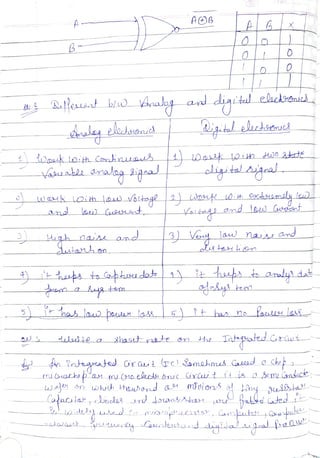 A
B
A⊕B
A B X
0 0 1
0 1 0
1 0 0
1 1 1
Different b/w Analog and digital electronics
Analog electronics Digital electronics
1) Work with continuous 1) Work with two state
Variable analog signal digital signal.
2) work with low voltage 2) work with extremely low
and low current. Voltage and low current
3) High noise and 3) Very low noise and
distortion. distortion
4) it helps to capture data 4) it helps to analys dat
from a system of system
5) it has low power loss 5) it has no power loss
write a short note on the Integrated Circuit
An integrated circuit (IC) Sometimes called a chip,
microchip or microelectronic circuit it is a semiconductor
wafer on which thousand or millions of tiny resistor
Capacitor, diodes and transistor are
is widely used in Computer
frequency digital signal